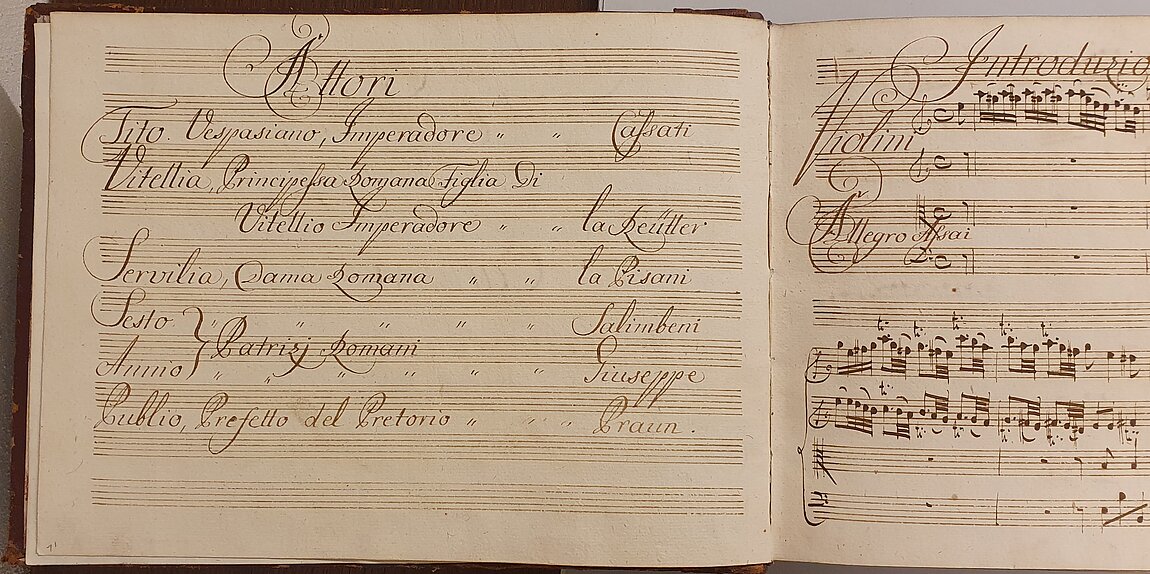 Attori
Tito Vespasiano, Imperadore " " Cassati
Vitellia, Principessa Romana Figlia Di
Vitellio Imperadore " " la Reütter
Servilia, Dama Romana " " la Pisani
Sesto " " " " " Salimbeni
Patrizj Romani
Annio " " " " " Giuseppe
Publio, Prefetto del Pretorio " " " Praun.
Introduzio
Violini
Allegro Assai